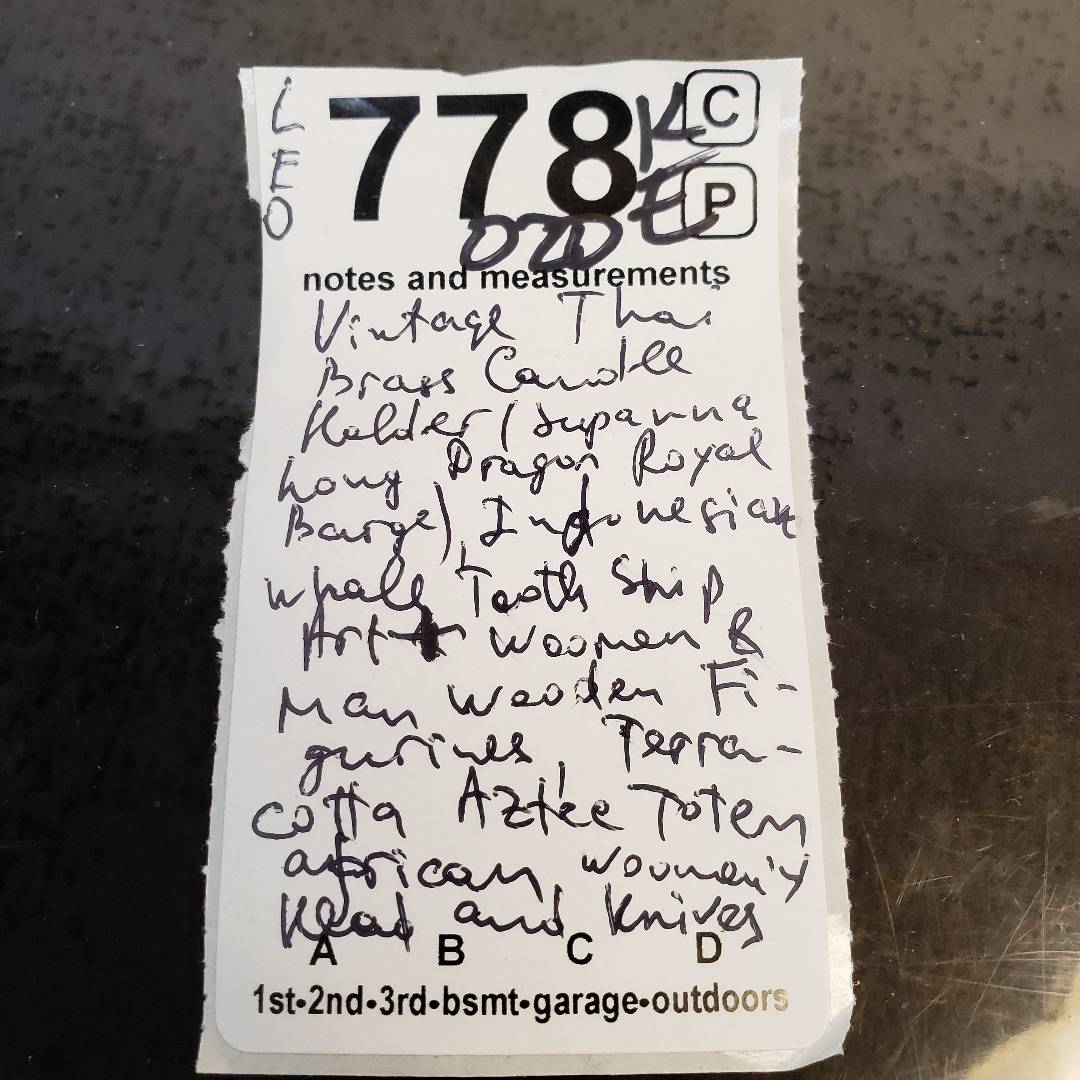 LEO
778
KE
C
P
OZD
notes and measurements
Vintage Thai
Brass Candle
Holder (Supanna
hong Dragon Royal
Barge), Indonesian
Whale Tooth Ship
Art Woomen &
Man Wooden Fi-
gurines, Terra-
cotta Aztec Totem
african, woomen's
Head and knives
A B C D
1st•2nd•3rd•bsmt•garage•outdoors